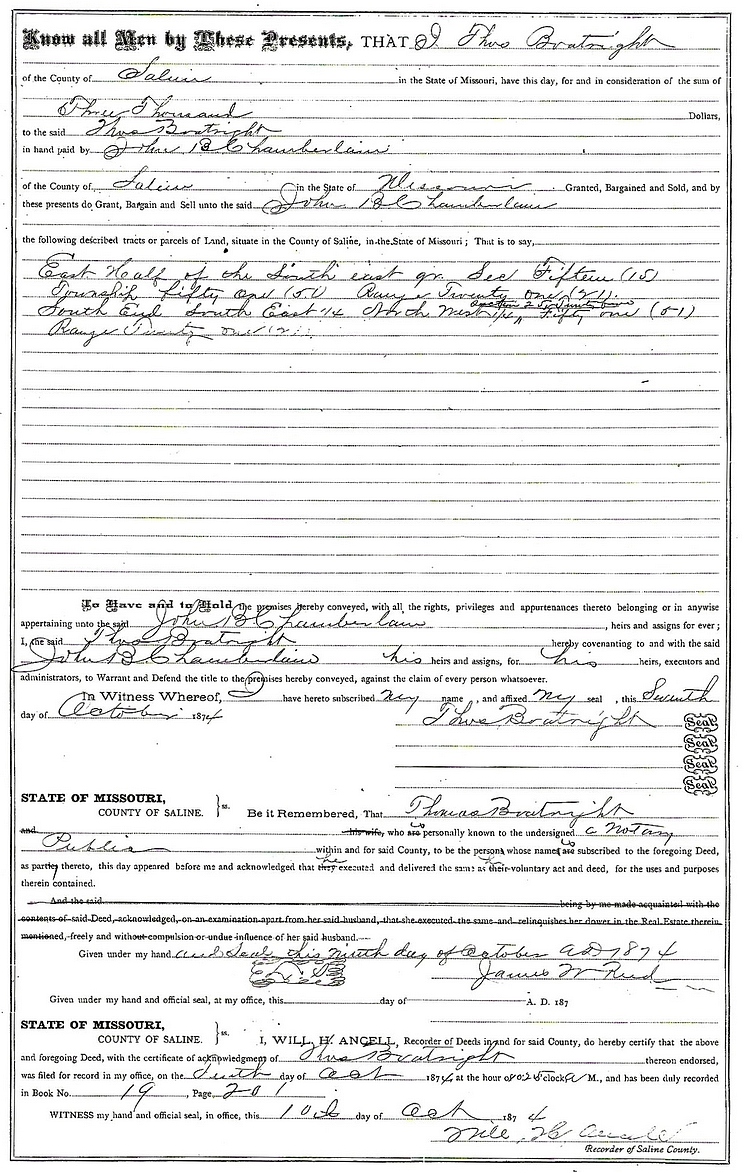 Know all Men by These Presents, THAT I Thos Boatright
of the County of Saline in the State of Missouri, have this day, for and in consideration of the sum of
Three Thousand Dollars,
to the said Thos Boatright
in hand paid by John B Chamberlain
of the County of, Saline in the State of Missouri Granted, Bargained and Sold, and by
these presents do Grant, Bargain and Sell unto the said John B Chamberlain
the following described tracts or parcels of Land, situate in the County of Saline, in the State of Missouri; That is to say,
East Half of the South east qr Sec Fifteen (15)
Township fifty one (51) Range Twenty one (21).
South End South East 1/4 North West 1/4 Fifty one (51)
Range Twenty one (21).
To Have and to Hold the premises hereby conveyed, with all the rights, privileges and appurtenances thereto belonging or in anywise
appertaining unto the said John B Chamberlain, heirs and assigns for ever;
I, the said Thos Boatright hereby covenanting to and with the said
John B Chamberlain his heirs and assigns, for his heirs, executors and
administrators, to Warrant and Defend the title to the premises hereby conveyed, against the claim of every person whatsoever.
In Witness Whereof, I have hereto subscribed my name, and affixed my seal, this Seventh
day of October 1874
Thos Boatright
STATE OF MISSOURI,
COUNTY OF SALINE. } ss. Be it Remembered, That Thomas Boatright
and his wife, who is are personally known to the undersigned a Notary
Public within and for said County, to be the persons whose names is are subscribed to the foregoing Deed,
as party thereto, this day appeared before me and acknowledged that he they executed and delivered the same as his their voluntary act and deed, for the uses and purposes
therein contained.
And the said being by me made acquainted with the
contents of said Deed, acknowledged, on an examination apart from her said husband, that she executed the same and relinquishes her dower in the Real Estate therein
mentioned, freely and without compulsion or undue influence of her said husband.
Given under my hand and Seal this Ninth day of October AD 1874
James W Reid
Given under my hand and official seal, at my office, this day of A. D. 187
STATE OF MISSOURI,
COUNTY OF SALINE. } ss. I, WILL H. ANCELL, Recorder of Deeds in and for said County, do hereby certify that the above
and foregoing Deed, with the certificate of acknowledgment of Thos Boatright thereon endorsed,
was filed for record in my office, on the Tenth day of Oct 1874, at the hour of o'clock M., and has been duly recorded
in Book No. 19, Page 201
WITNESS my hand and official seal, in office, this 10th day of Oct 1874
Will H Ancell
Recorder of Saline County.